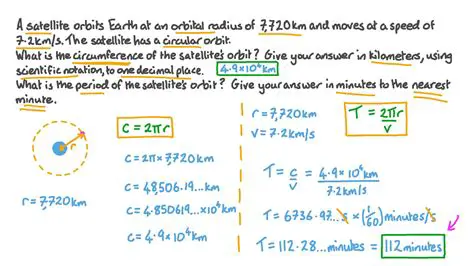 A satellite orbits Earth at an orbital radius of 7,720km and moves at a speed of
7.2km/s. The satellite has a circular orbit.
What is the circumference of the satellite's orbit? Give your answer in kilometers, using
scientific notation, to one decimal place. 4.9×10⁴km
What is the period of the satellite's orbit? Give your answer in minutes to the nearest
minute.
r
r = 7,720km
c = 2πr
c = 2π × 7,720km
c = 48,506.19...km
c = 4.850619...×10⁴km
c = 4.9×10⁴km
r = 7,720km
v = 7.2km/s
T = 2πr/v
T = c/v = 4.9×10⁴km/7.2km/s
T = 6736.97...s × (1/60) minutes/s
T = 112.28... minutes = 112 minutes